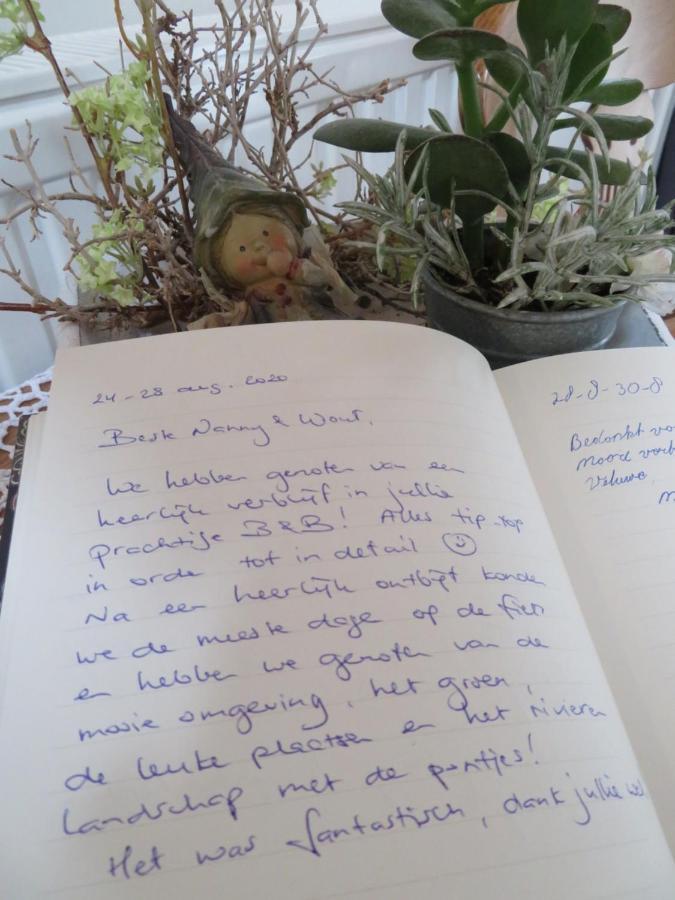 24-28 aug. 2020
Beste Nanny & Wout,
We hebben genoten van een
heerlijk verblijf in jullie
prachtige B&B! Alles tip-top
in orde tot in detail ☺
Na een heerlijk ontbijt konden
we de meeste dage op de fiets
en hebben we genoten van de
mooie omgeving, het groen,
de leuke plaatsen en het rivieren
landschap met de pontjes!
Het was fantastisch, dank jullie wel
28-8-30-8
Bedankt vo
Veluwe.